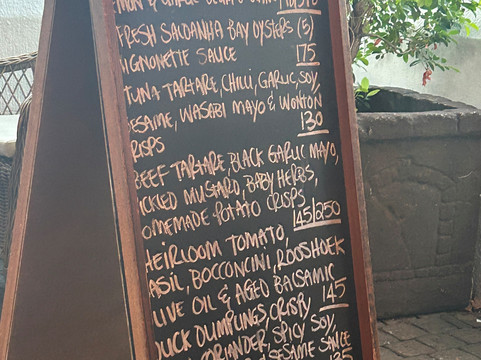 FRESH SALDANHA BAY OYSTERS (5)
IGNONETTE SAUCE
175
TUNA TARTARE, CHILLI, GARLIC, SOY,
ESAME, WASABI MAYO & WONTON
130
RISPS
BEEF TARTARE, BLACK GARLIC MAYO,
ICKLED MUSTARD, BABY HERBS,
OMEMADE POTATO CRISPS
145/250
HEIRLOOM TOMATO,
ASIL, BOCCONCINI, ROOSHOEK
LIVE OIL & AGED BALSAMIC
145
DUCK DUMPLINGS, CRISPY
CORIANDER, SPICY SOY,
SESAME SAUCE